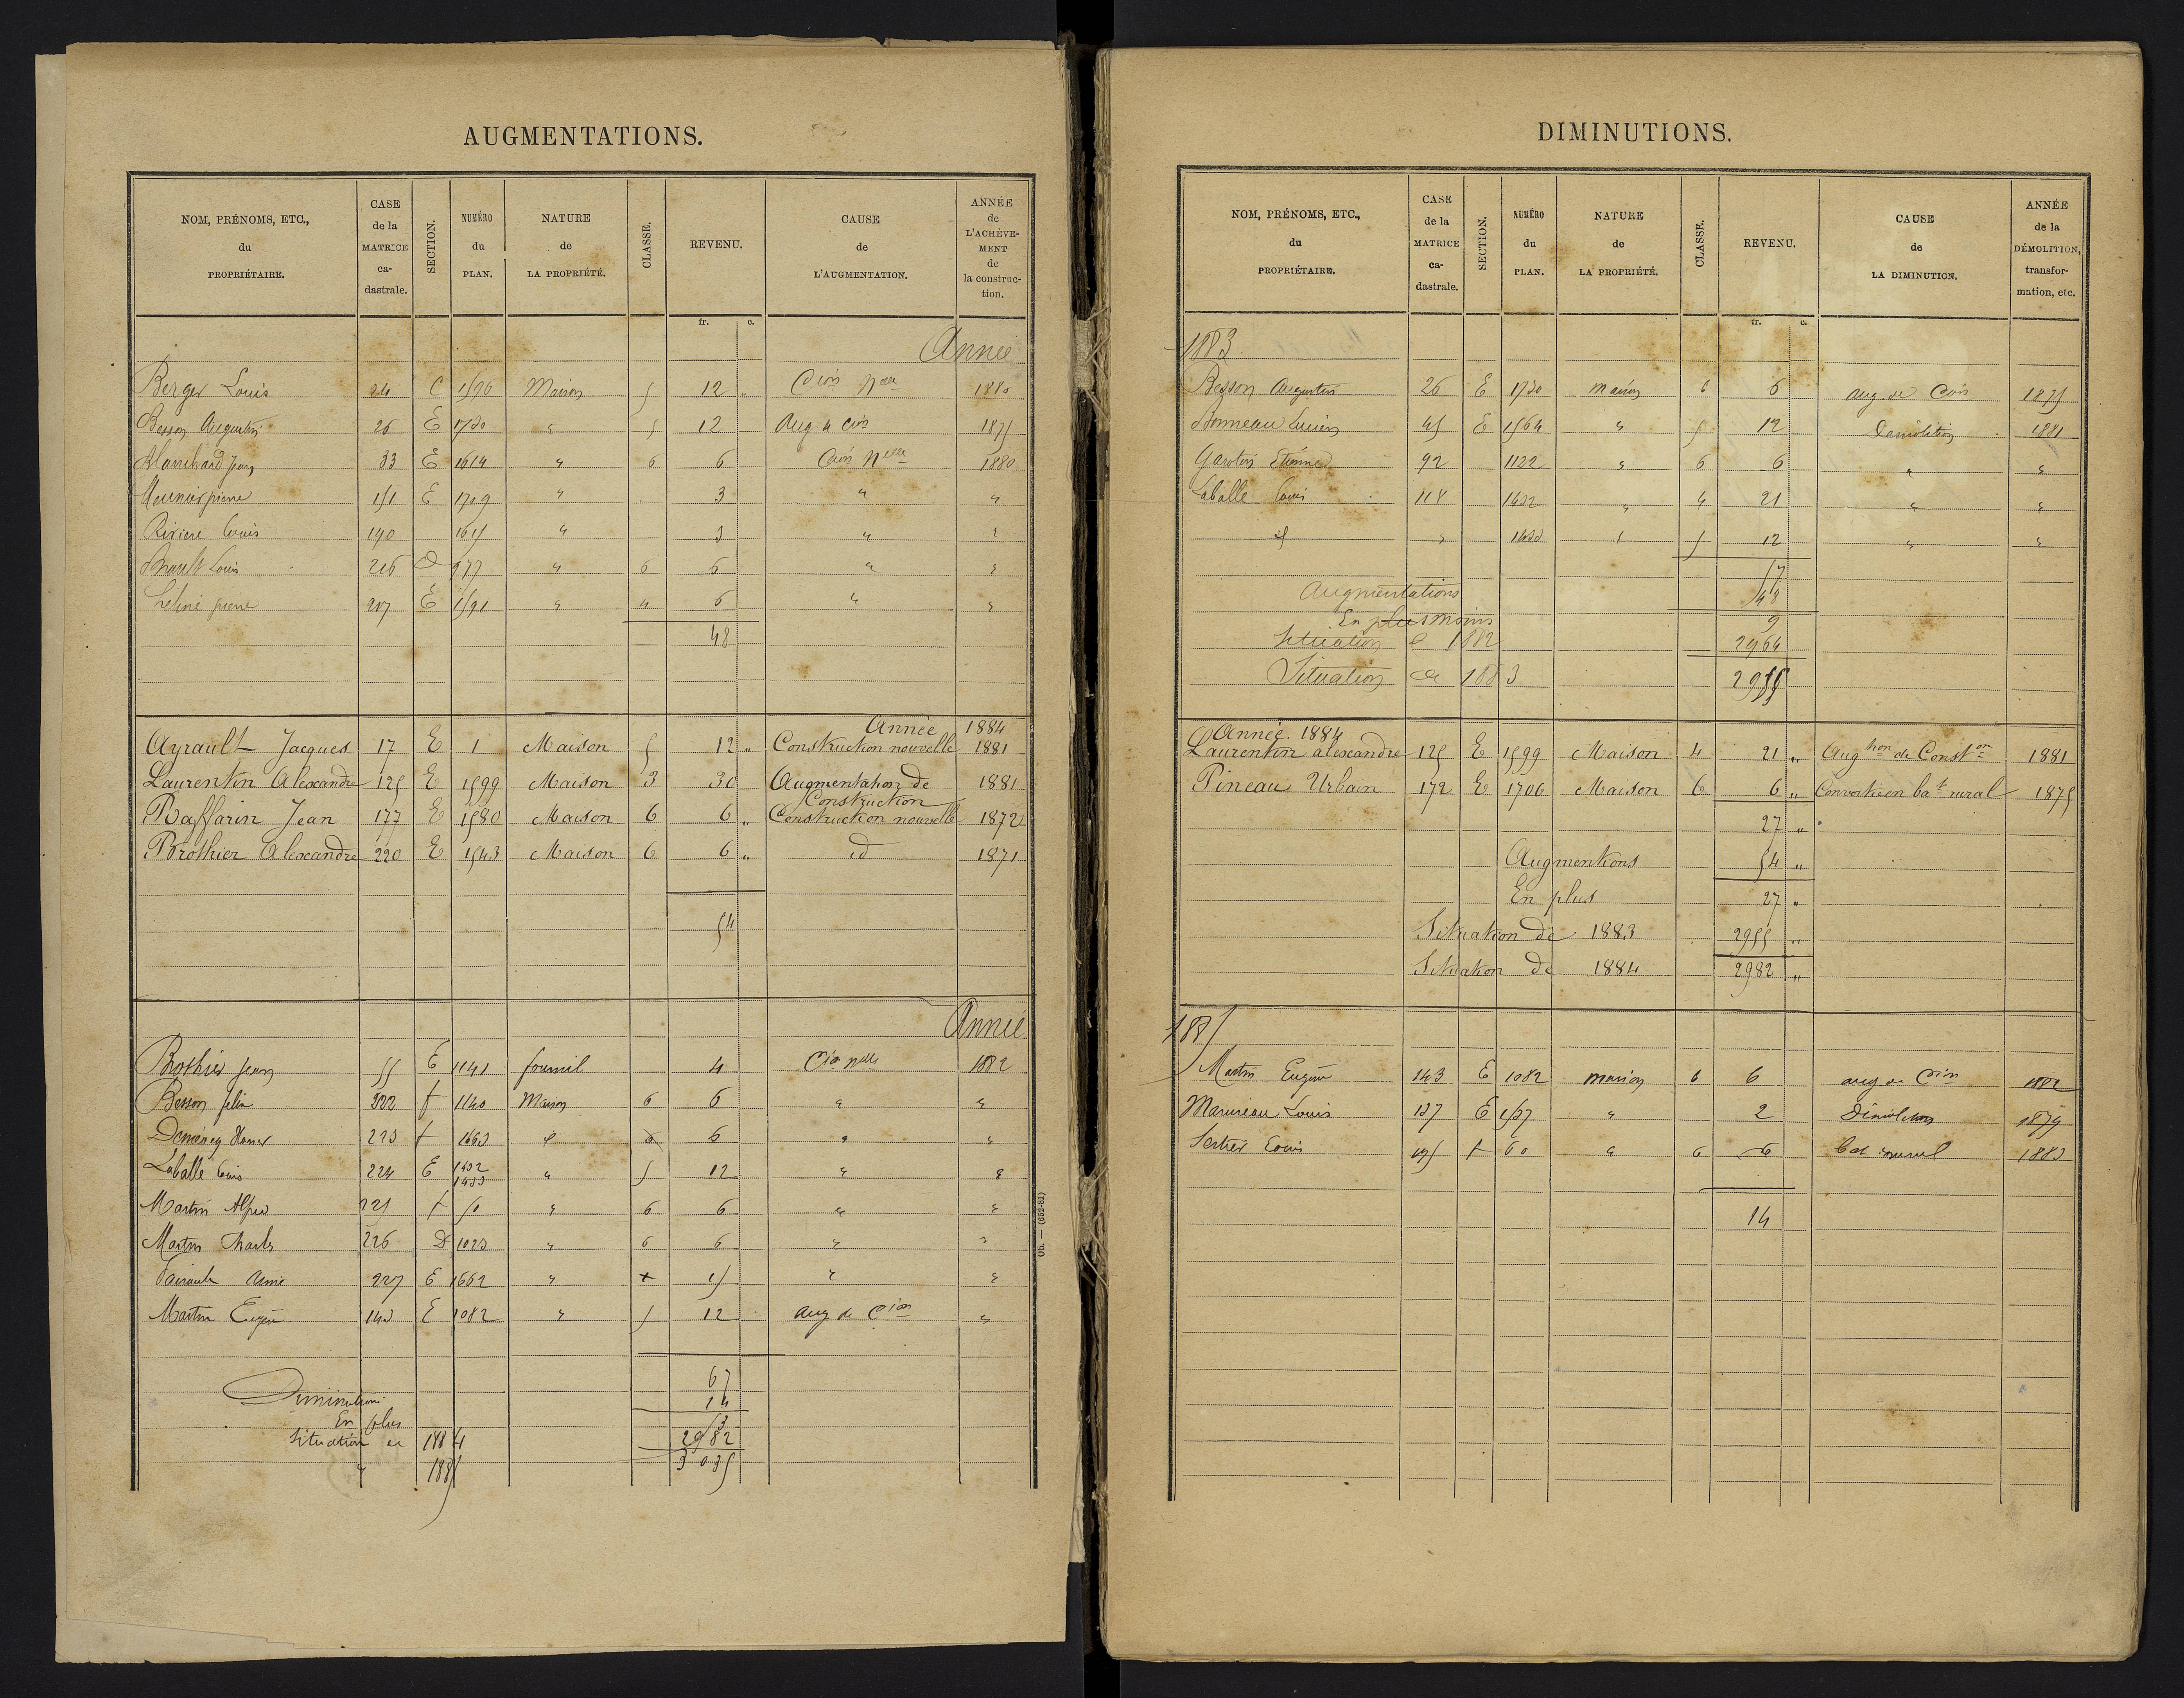 AUGMENTATIONS.
NOM, PRÉNOMS, ETC., du PROPRIÉTAIRE. CASE de la MATRICE ca-dastrale. SECTION. NUMÉRO du PLAN. NATURE de LA PROPRIÉTÉ. CLASSE. REVENU. CAUSE de L'AUGMENTATION. ANNÉE de L'ACHÈVE-MENT de la construc-tion.
fr. c.
Année
Berger Louis 24 C 1526 Maison 5 12 " C ion nelle 1880
Besson Augustin 26 E 1730 " 5 12 Aug de cion 1875
Blanchard Jean 33 E 1614 " 6 6 Cion Nelle 1880
Meunier pierre 151 E 1709 " 3 " "
Riviere Louis 190 1615 " 3 " "
Louis 216 D 977 " 6 6 " "
pierre 217 E 1591 " " 6 " "
48
Année 1884
Ayrault Jacques 17 E 1 Maison 5 12 " Construction nouvelle 1881
Laurentin Alexandre 125 E 1599 Maison 3 30 Augmentation de Construction 1881
Raffarin Jean 177 E 1580 Maison 6 6 " Construction nouvelle 1872
Brothier Alexandre 220 E 1543 Maison 6 6 " id 1871
54
Année
Brothier Jean 55 E 1141 fournil 4 Cion nelle 1882
Besson felix 222 f 1140 Maison 6 6 " "
223 f 1663 " 6 6 " "
Laballe Louis 224 E 1432 1433 " 5 12 " "
Martin Alfred 225 f 50 " 6 6 " "
Martin Charles 226 D 1023 " 6 6 " "
Aimé 227 E 1662 " + 15 " "
Martin Eugène 143 E 1082 " 5 12 Aug de Cion "
67
Diminutions 14
En plus 53
Situation de 1884 2982
" 1885 3035
Ob. — (652-81)
DIMINUTIONS.
NOM, PRÉNOMS, ETC., du PROPRIÉTAIRE. CASE de la MATRICE ca-dastrale. SECTION. NUMÉRO du PLAN. NATURE de LA PROPRIÉTÉ. CLASSE. REVENU. CAUSE de LA DIMINUTION. ANNÉE de la DÉMOLITION, transfor-mation, etc.
fr. c.
1883
Besson Augustin 26 E 1730 maison 6 6 aug de Cion 1875
Bonneau Lucien 45 E 1564 " 5 12 Demolition 1881
Garotin Etienne 92 1122 " 6 6 " "
Laballe Louis 118 1432 " 4 21 " "
id " 1433 " 5 12 " "
57
Augmentations 48
En plus moins 9
Situation de 1882 2964
Situation de 1883 2955
Année 1884
Laurentin alexandre 125 E 1599 Maison 4 21 " Aug tion de Const on 1881
Pineau Urbain 172 E 1706 Maison 6 6 " Convertie en bat rural 1875
27 "
Augmentions 54 "
En plus 27 "
Situation de 1883 2955 "
Situation De 1884 2982 "
1885
Martin Eugène 143 E 1082 maison 6 6 aug de Cion 1882
Louis 137 E 1537 " 2 Démolition 1879
Louis 195 f 60 " 6 6 bat rural 1883
14